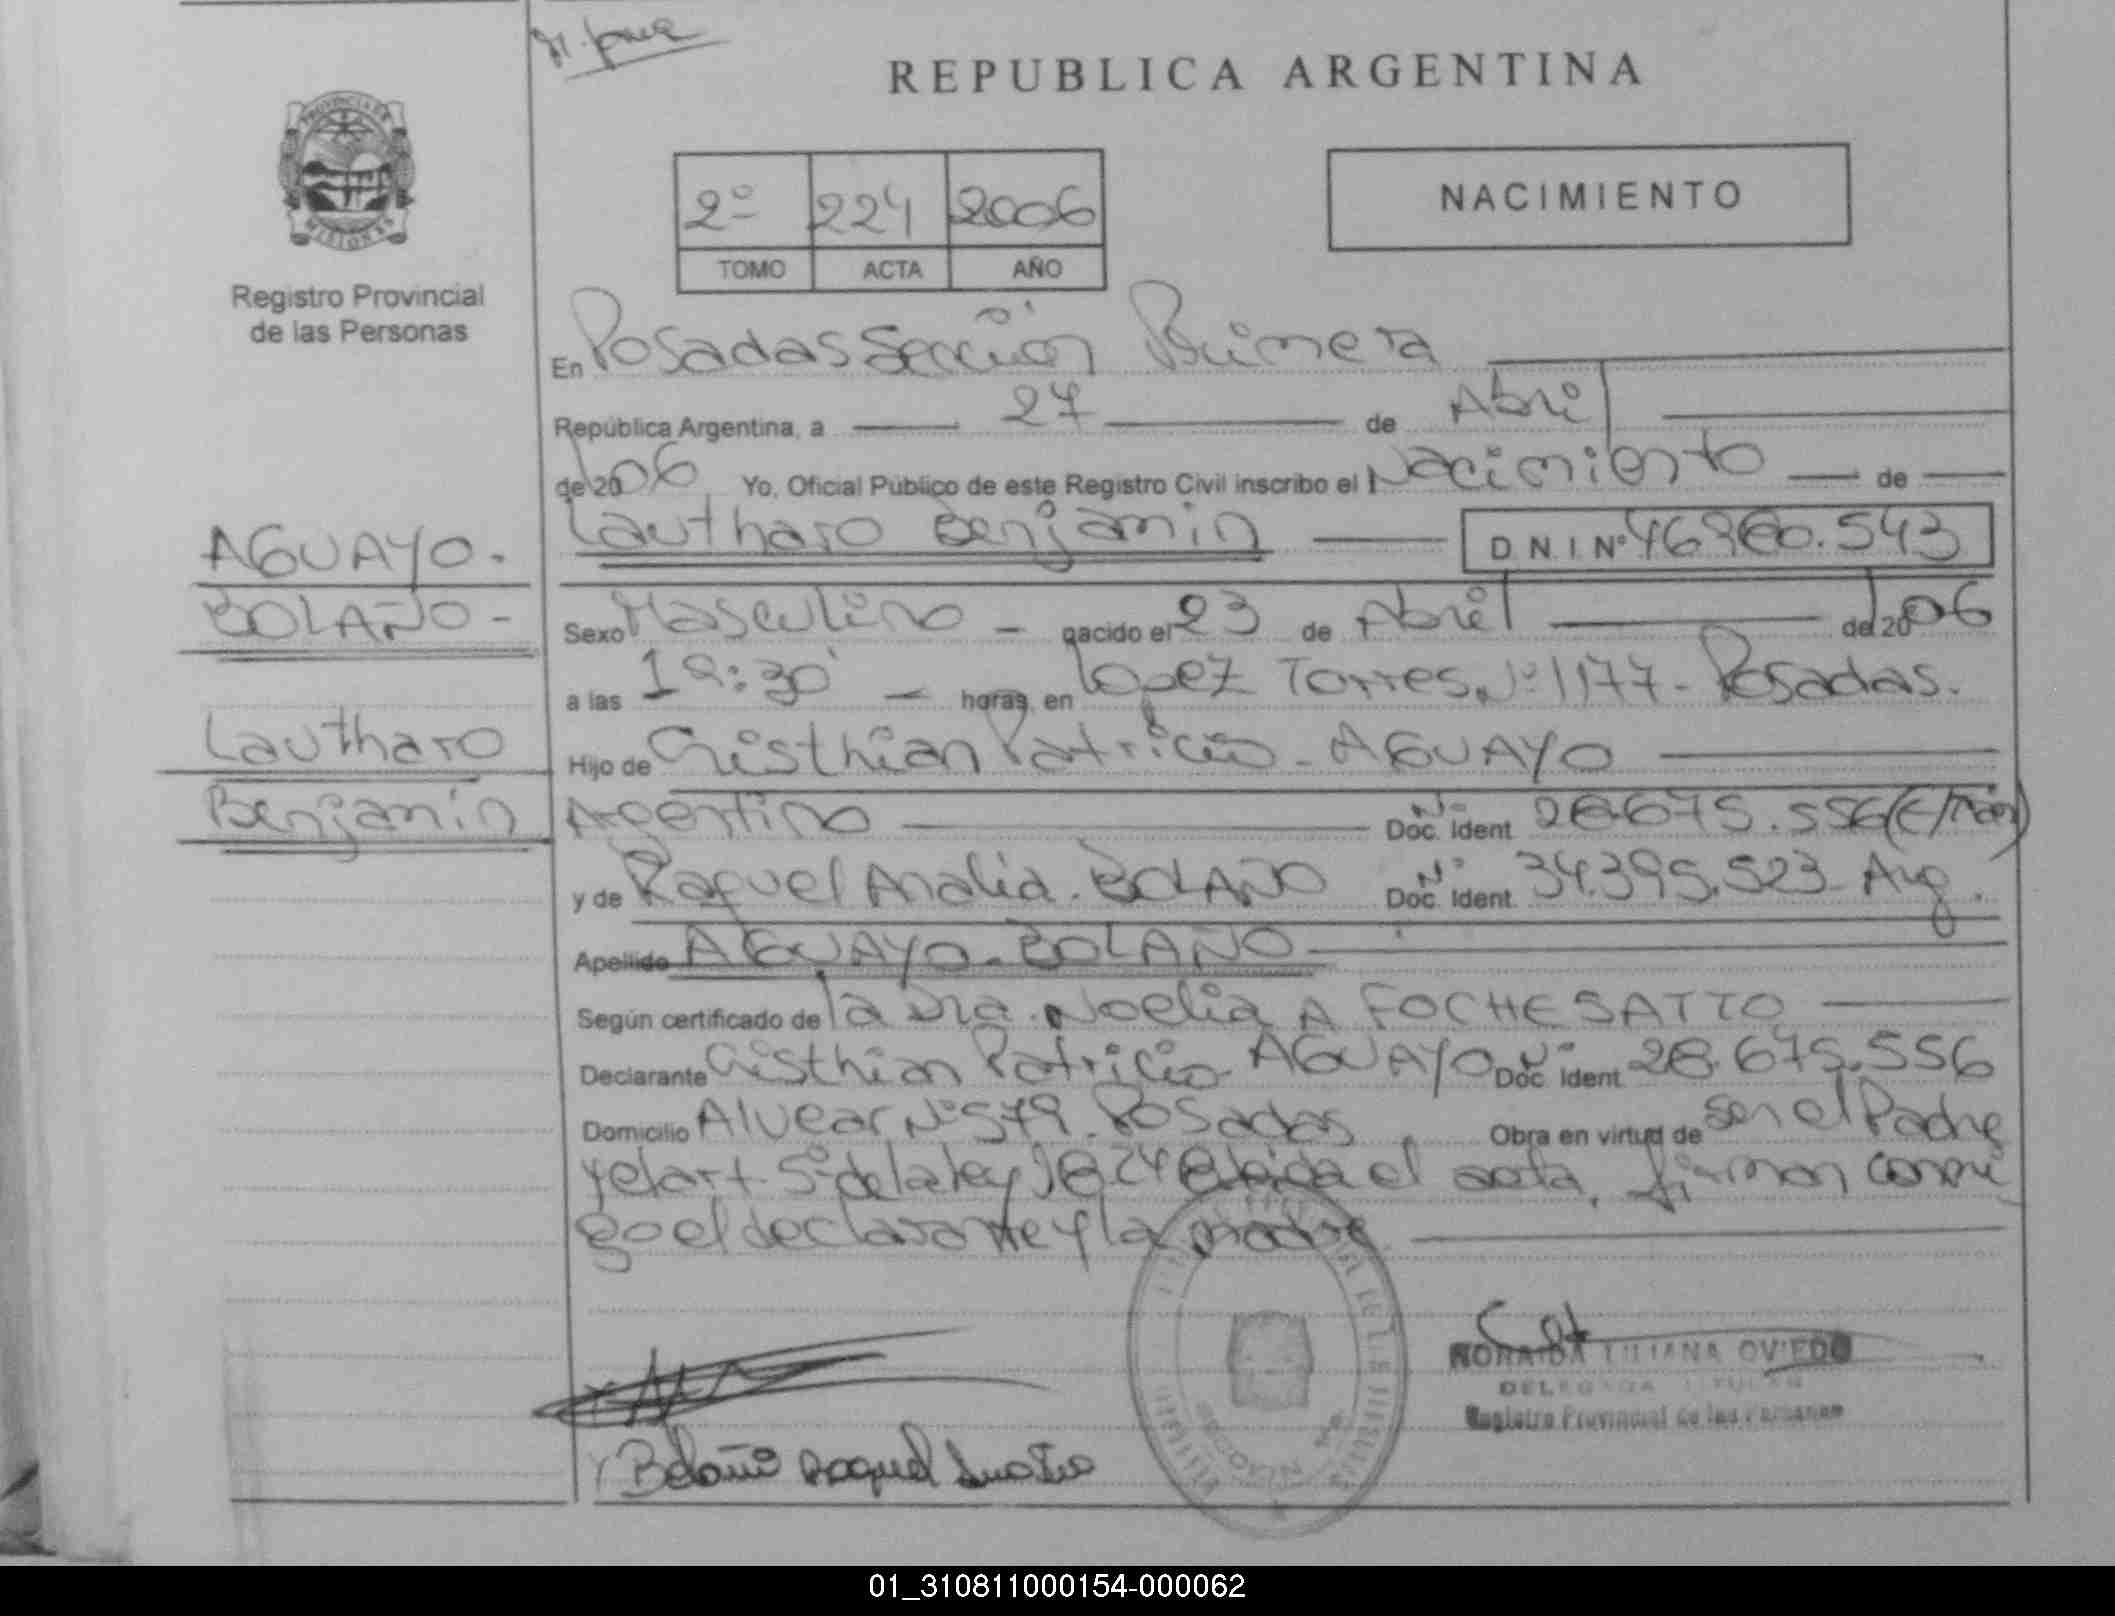 REPUBLICA ARGENTINA
PROVINCIA DE
MISIONES
Registro Provincial
de las Personas
2º 224 2006
TOMO ACTA AÑO
NACIMIENTO
En Posadas Sección Primera
República Argentina, a 27 de Abril
de 2006 Yo, Oficial Público de este Registro Civil inscribo el Nacimiento de
Lautharo Benjamin D.N.I Nº 46.360.543
AGUAYO.
BOLAÑO-
Lautharo
Benjamin
Sexo Masculino - nacido el 23 de Abril de 2006
a las 19:30 horas, en Lopez Torres Nº 1177- Posadas.
Hijo de Cristhian Patricio - AGUAYO
Argentino Nº Doc. Ident. 28.675.556
y de Raquel Analia. BOLAÑO Nº Doc. Ident. 34.395.523 Arg.
Apellido AGUAYO-BOLAÑO
Según certificado de la Dra. Noelia A FOCHESATTO
Declarante Cristhian Patricio AGUAYO Nº Doc. Ident. 28.675.556
Domicilio Alvear Nº 579. Posadas, Obra en virtud de ser el Padre
y el art. 5º de la ley 18248 leida el acta, firman conmi
go el declarante y la madre
NORAIDA LILIANA OVIEDO
DELEGADA TITULAR
Registro Provincial de las Personas
Bolaño Raquel
01_310811000154-000062